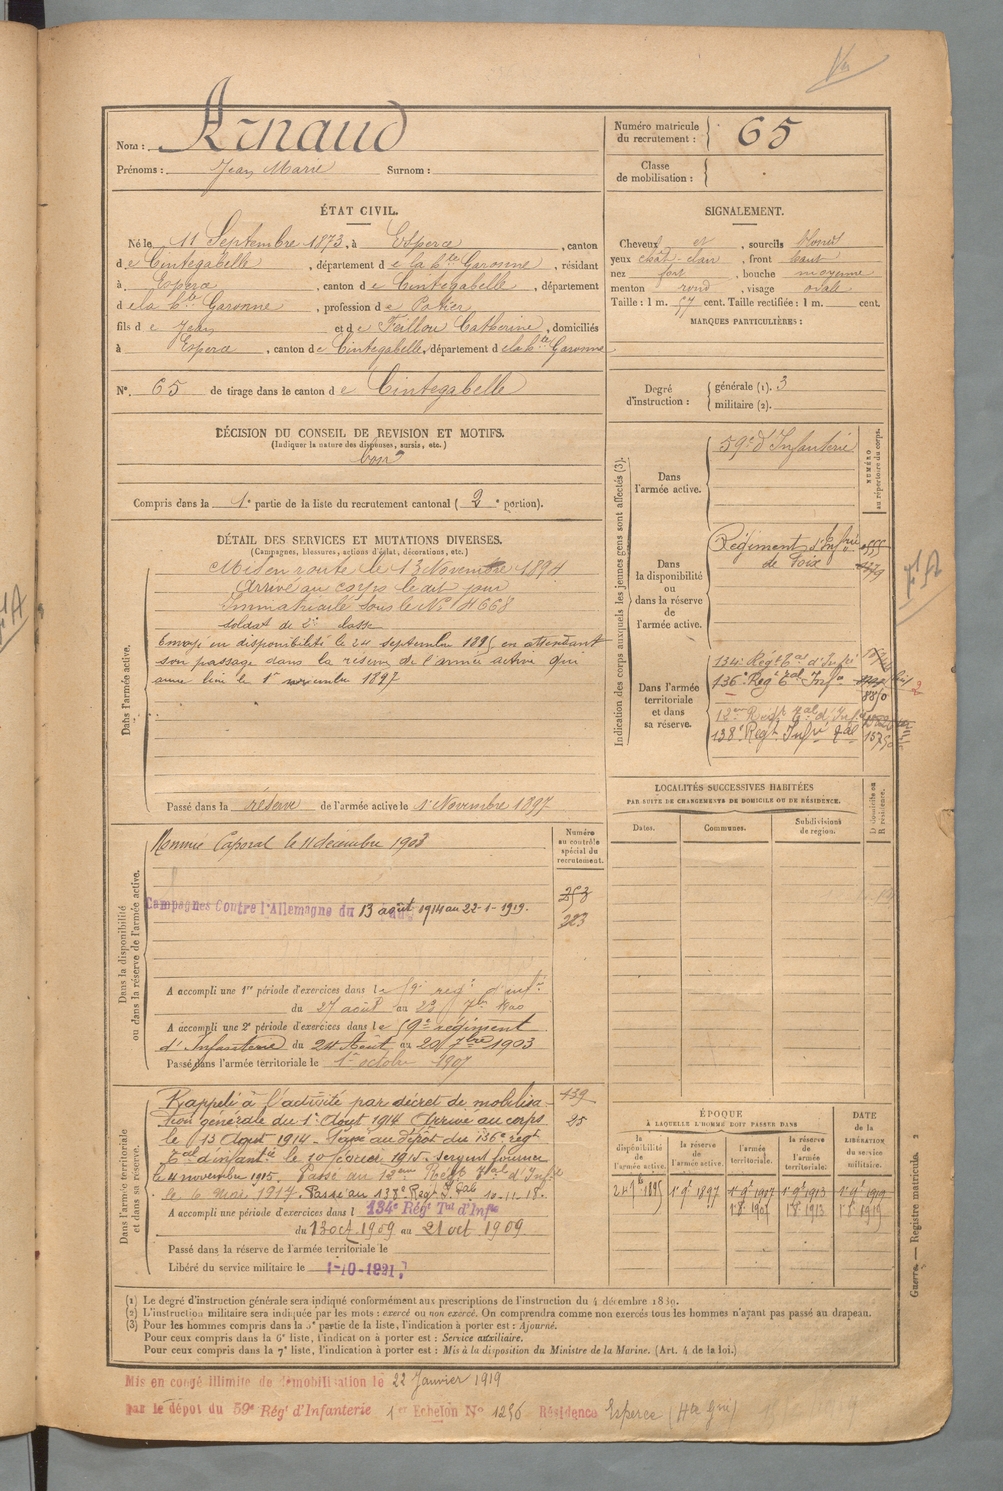 Nom : Arnaud
Prénoms : Jean Marie Surnom :
Numéro matricule du recrutement : 65
Classe de mobilisation :
ÉTAT CIVIL.
Né le 11 Septembre 1873, à Esperce, canton
de Cintegabelle, département de la Hte Garonne, résidant
à Esperce, canton de Cintegabelle, département
de la Hte Garonne, profession de Potier
fils de Jean et de Feillou Catherine, domiciliés
à Esperce, canton de Cintegabelle, département de la Hte Garonne
N° 65 de tirage dans le canton de Cintegabelle
SIGNALEMENT.
Cheveux et, sourcils blonds
yeux chât-clair, front haut
nez fort, bouche moyenne
menton rond, visage ovale
Taille : 1 m. 57 cent. Taille rectifiée : 1 m. cent.
MARQUES PARTICULIÈRES :
Degré d'instruction : générale (1). 3
militaire (2).
DÉCISION DU CONSEIL DE REVISION ET MOTIFS.
(Indiquer la nature des dispenses, sursis, etc.)
bon
Compris dans la 1e partie de la liste du recrutement cantonal ( 2e portion).
DÉTAIL DES SERVICES ET MUTATIONS DIVERSES.
(Campagnes, blessures, actions d'éclat, décorations, etc.)
Dans l'armée active.
Mis en route le 13 Novembre 1894
Arrivé au corps le dit jour
Immatriculé sous le N° 4668
soldat de 2e classe
Envoyé en disponibilité le 24 septembre 1895 en attendant
son passage dans la réserve de l'armée active qui
aura lieu le 1er novembre 1897
Passé dans la réserve de l'armée active le 1er Novembre 1897
Indication des corps auxquels les jeunes gens sont affectés (3).
NUMÉRO au répertoire du corps.
Dans l'armée active.
59e d'Infanterie
Dans la disponibilité ou dans la réserve de l'armée active.
Régiment d'Infrie
de Foix
Dans l'armée territoriale et dans sa réserve.
134e Régt Tal d'Infie
136e Régt Tal Infie 8850
12e Régt Tal d'Infie
138e Régt Infie Tal
LOCALITÉS SUCCESSIVES HABITÉES
PAR SUITE DE CHANGEMENTS DE DOMICILE OU DE RÉSIDENCE.
Dates. Communes. Subdivisions de région. D domicile ou R résidence.
Dans la disponibilité ou dans la réserve de l'armée active.
Numéro au contrôle spécial du recrutement.
Nommé Caporal le 11 décembre 1903
253
323
Campagnes Contre l'Allemagne du 13 août 1914 au 22-1-1919.
A accompli une 1re période d'exercices dans le 59e régt d'infie
du 27 août au 23 7bre 1900
A accompli une 2e période d'exercices dans le 59e régiment
d'Infanterie du 24 Août au 20 7bre 1903
Passé dans l'armée territoriale le 1er octobre 1907
Dans l'armée territoriale et dans sa réserve.
139
25
Rappelé à l'activité par décret de mobilisa-
tion générale du 1er Août 1914 Arrivé au corps
le 13 Août 1914 - Passé au Dépôt du 136e régt
Tal d'infantie le 10 février 1915 - sergent fourrier
le 4 novembre 1915. Passé au 12e Régt Tal d'Infie
le 6 mai 1917. Passé au 138e Régt I. Tal 10-11-18.
A accompli une période d'exercices dans l 134e Régt Tal d'Infie
du 13 oct 1909 au 21 oct 1909
Passé dans la réserve de l'armée territoriale le
Libéré du service militaire le 1-10-1921
ÉPOQUE
À LAQUELLE L'HOMME DOIT PASSER DANS
la disponibilité de l'armée active. la réserve de l'armée active. l'armée territoriale. la réserve de l'armée territoriale. DATE de la LIBÉRATION du service militaire.
24 9b 1895 1er 9b 1897 1er 9b 1907 1er 9b 1913 1er 9b 1919
1 8 1907 1 8 1913 1 8 1919
Guerre. — Registre matricule. 2
(1) Le degré d'instruction générale sera indiqué conformément aux prescriptions de l'instruction du 4 décembre 1889.
(2) L'instruction militaire sera indiquée par les mots : exercé ou non exercé. On comprendra comme non exercés tous les hommes n'ayant pas passé au drapeau.
(3) Pour les hommes compris dans la 5e partie de la liste, l'indication à porter est : Ajourné.
Pour ceux compris dans la 6e liste, l'indication à porter est : Service auxiliaire.
Pour ceux compris dans la 7e liste, l'indication à porter est : Mis à la disposition du Ministre de la Marine. (Art. 4 de la loi.)
Mis en congé illimité de démobilisation le 22 Janvier 1919
par le dépôt du 59e Régt d'Infanterie 1er Echelon N° 1286 Résidence Esperce (Hte Gne)